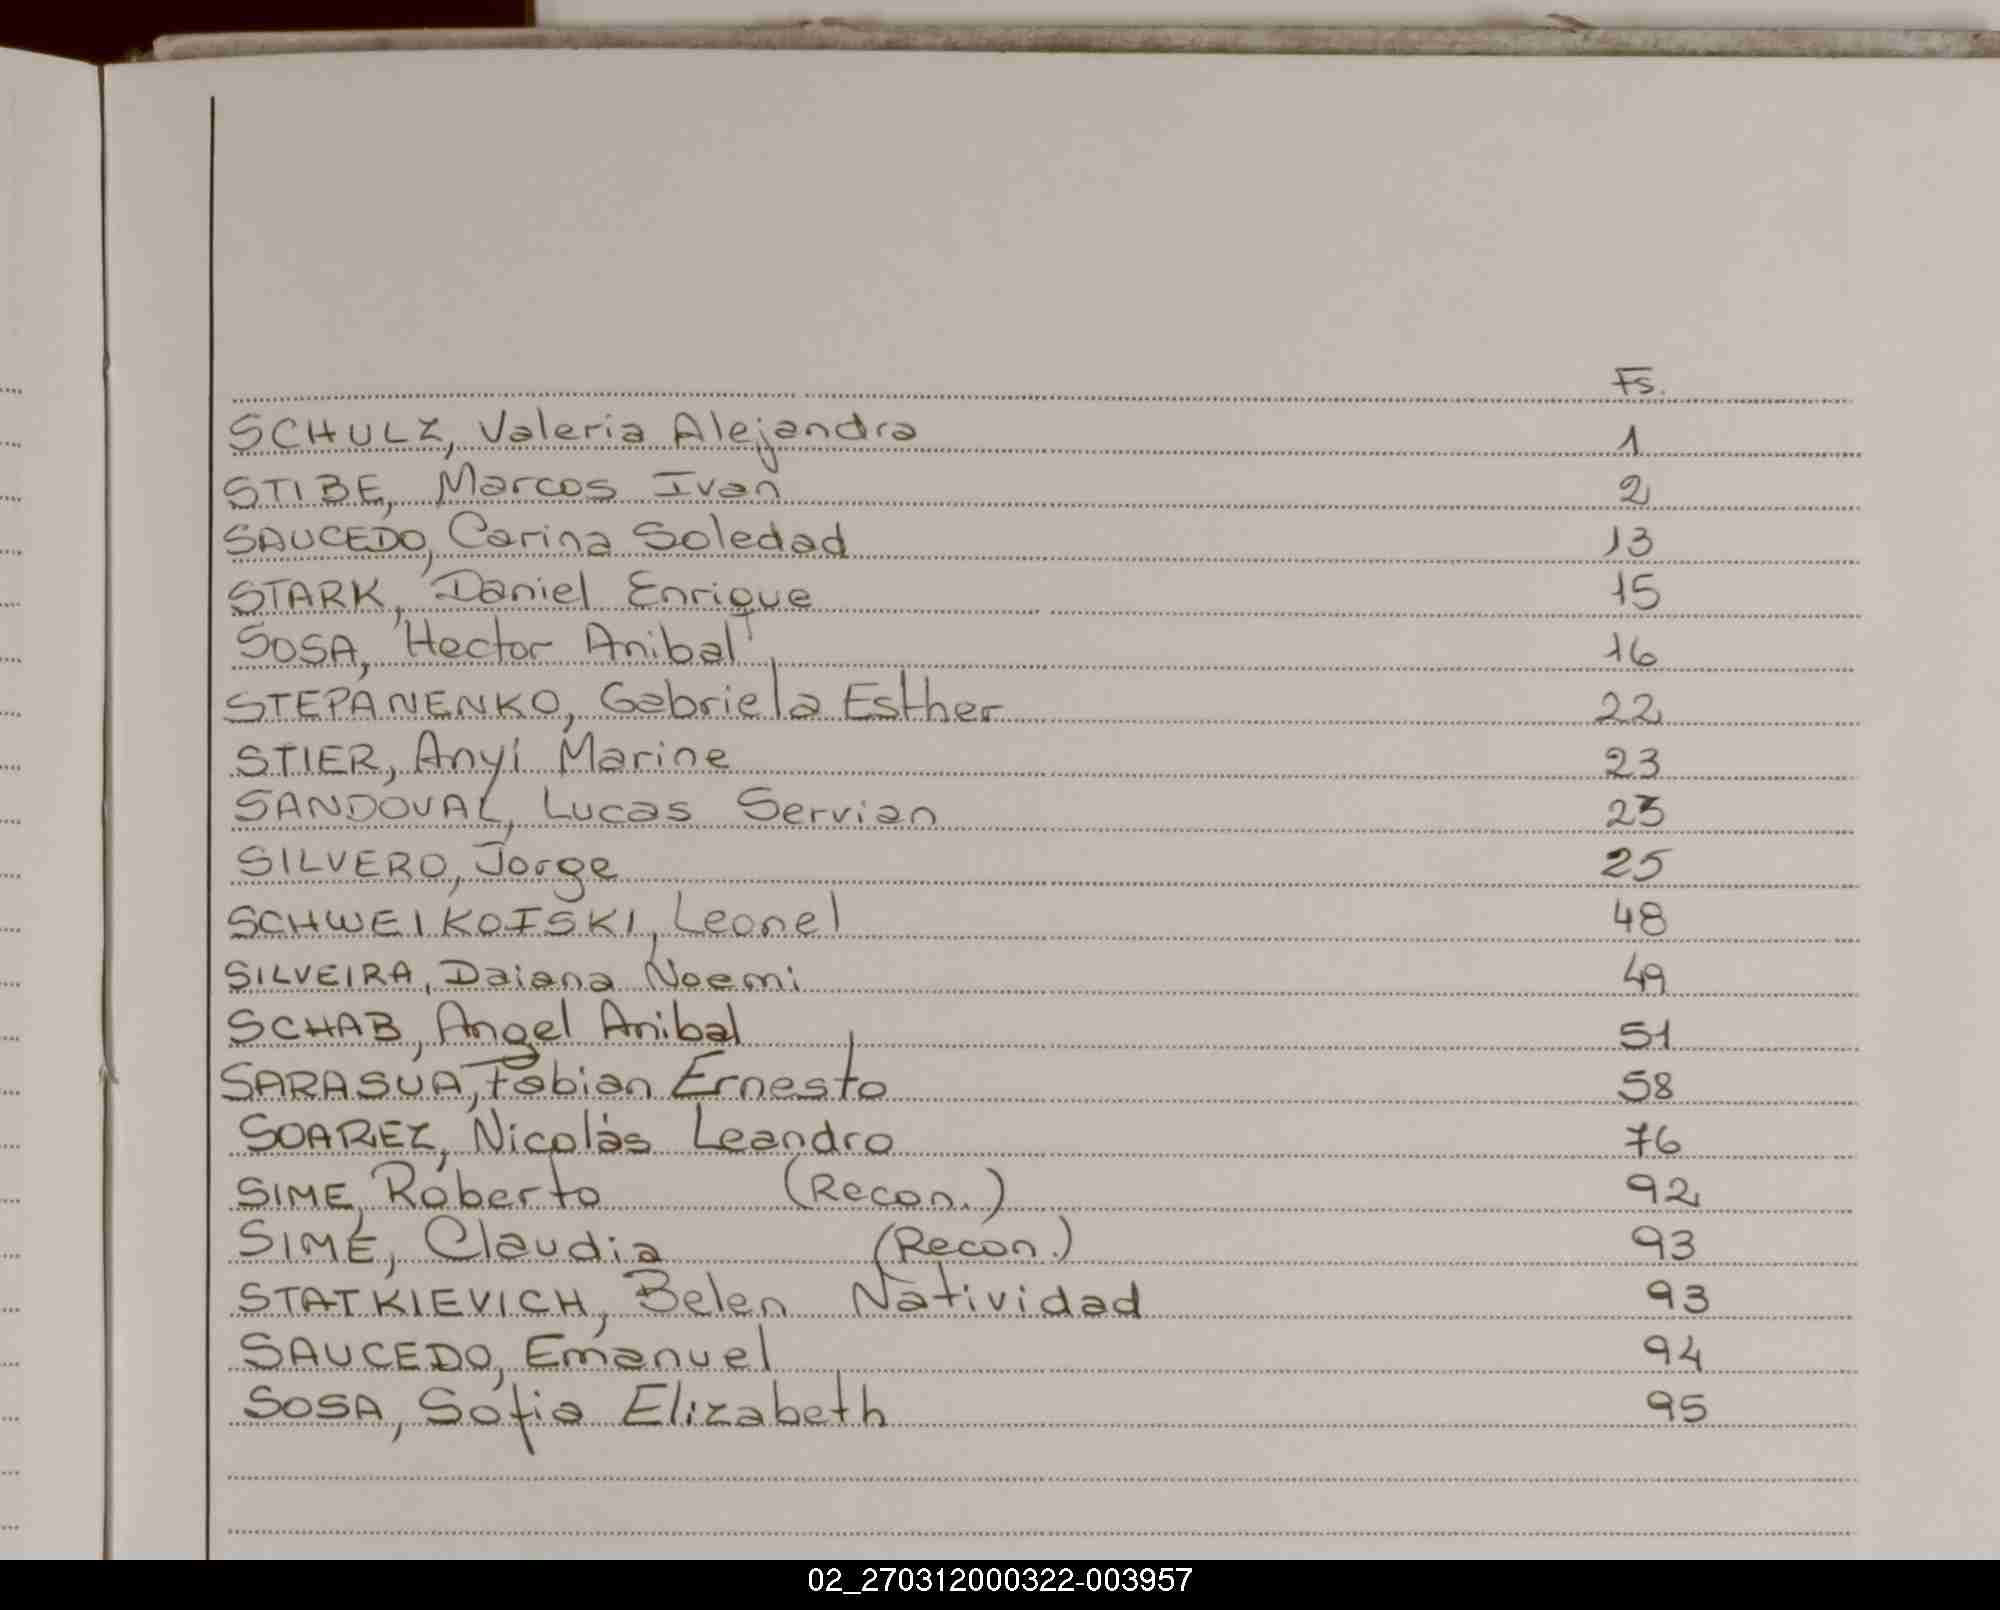 Fs.
SCHULZ, Valeria Alejandra 1
STIBE, Marcos Ivan 2
SAUCEDO, Carina Soledad 13
STARK, Daniel Enrique 15
SOSA, Hector Anibal 16
STEPANENKO, Gabriela Esther 22
STIER, Anyi Marine 23
SANDOVAL, Lucas Servian 23
SILVERO, Jorge 25
SCHWEIKOFSKI, Leonel 48
SILVEIRA, Daiana Noemi 49
SCHAB, Angel Anibal 51
SARASUA, Fabian Ernesto 58
SOAREZ, Nicolás Leandro 76
SIME, Roberto (Recon.) 92
SIME, Claudia (Recon.) 93
STATKIEVICH, Belen Natividad 93
SAUCEDO, Emanuel 94
SOSA, Sofia Elizabeth 95
02_270312000322-003957